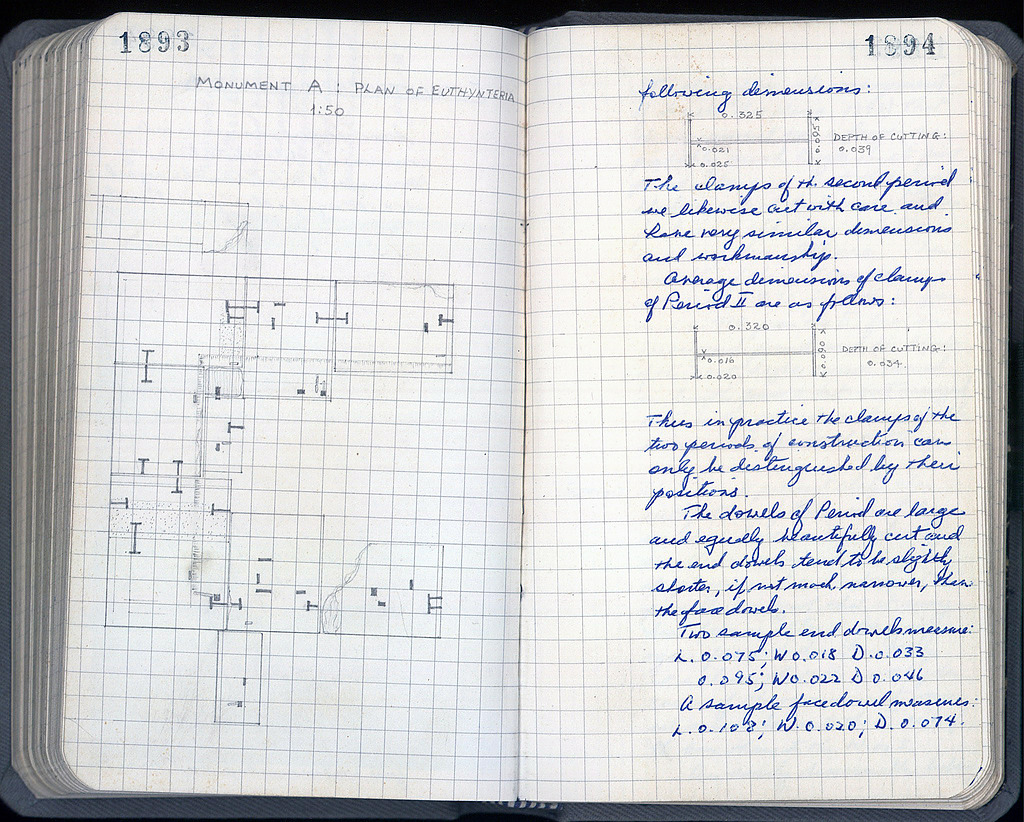 1893
MONUMENT A : PLAN OF EUTHYNTERIA
1:50
1894
following dimensions:
0.325
0.021
0.025
DEPTH OF CUTTING:
0.039
The clamps of the second period
we likewise cut with care and
have very similar dimensions
and workmanship.
Average dimensions of clamps
of Period II are as follows:
0.320
0.016
0.020
DEPTH OF CUTTING:
0.034
Thus in practice the clamps of the
two periods of construction can
only be distinguished by their
positions.
The dowels of Period are large
and equally beautifully cut and
the end dowels tend to be slightly
shorter, if not much narrower, than
the face dowels.
Two sample end dowels measure:
L. 0.075; W 0.018 D. 0.033
0.095; W 0.022 D 0.046
A sample face dowel measures:
L. 0.108; W. 0.020; D. 0.074.